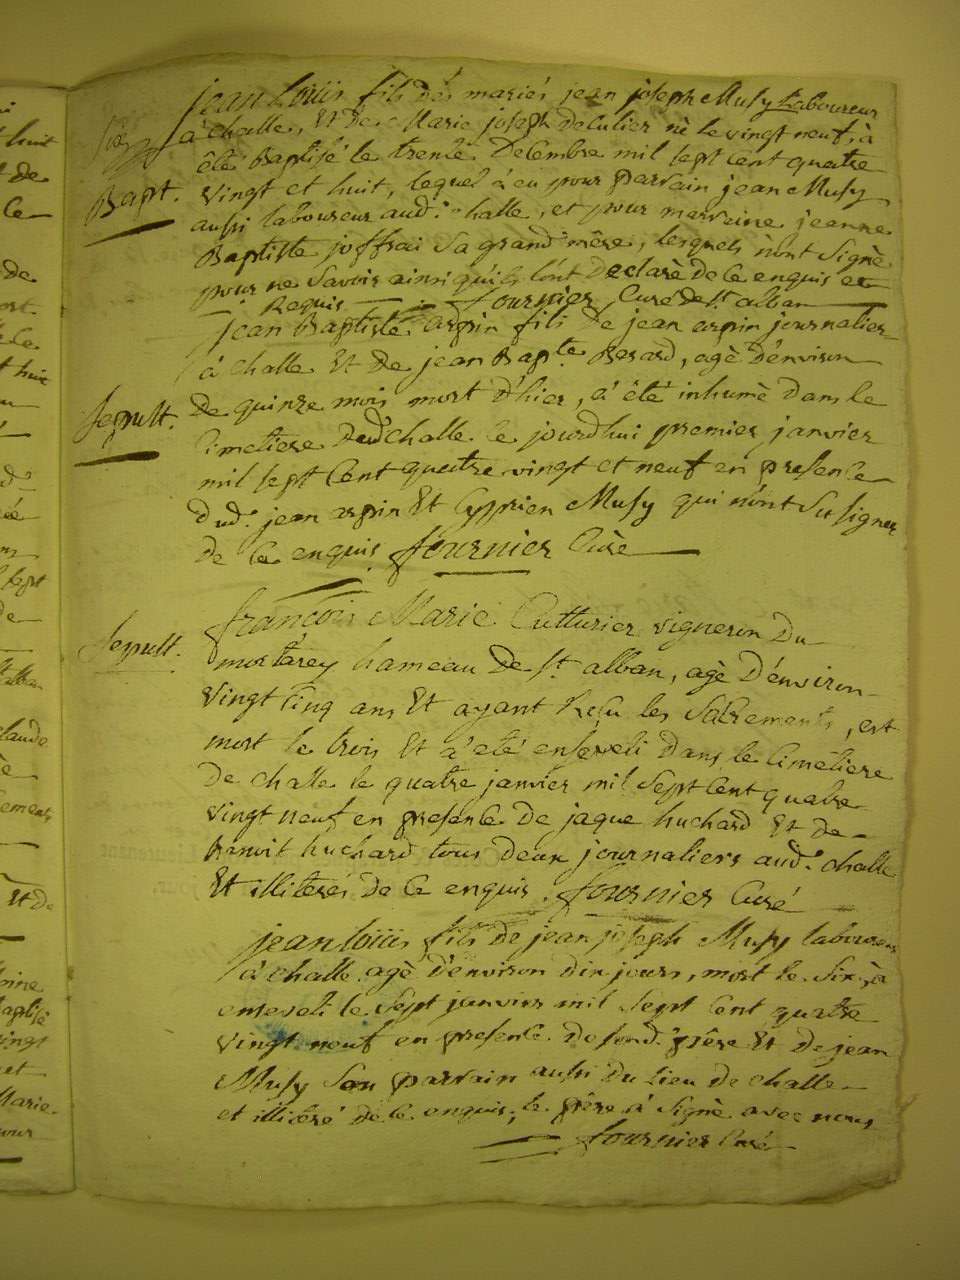 jean loüis fils des mariés jean joseph Musy Laboureur
à challe, Et de Marie joseph deculier nè le vingt neuf, à
été Baptisé le trente Decembre mil sept cent quatre
Bapt. vingt et huit, lequel à eu pour parrain jean Musy
aussi laboureur aud.t challe, et pour marreine jeanne
Baptiste joffrai sa grand mère, lesquels nont signè
pour ne savoir ainsi quils l'ont Declarè de ce enquis et
Requis fournier Curé de st. alban
jean Baptiste arpin fils de jean arpin journalier
à challe Et de jean Bap.te Berard, agè d'environ
Sepult. de quinze mois mort d'hier, à été inhumè dans le
Cimetiere dud challe le jourdhui premier janvier
mil sept Cent quatre vingt et neuf en presence
dud. jean arpin Et Cyprien Musy qui n'ont su signer
de ce enquis fournier Curè
françois Marie Cutturier vigneron Du
Sepult. mortarey hameau de st. alban, agè D'environ
vingt cinq ans Et ayant Reçu les Sacrements, est
mort le trois Et à eté enseveli dans le Cimetiere
De challe le quatre janvier mil sept cent quatre
vingt neuf en presence De jaque huchard Et de
benoit huchard tous deux journaliers aud. challe
Et illiterés de ce enquis. fournier Curé
jean loüis fils de jean joseph Musy laboureur
à challe agè d'environ dix jours, mort le six, à
enseveli le sept janvier mil sept cent quatre
vingt neuf en presence de sond. père Et De jean
Musy Son parrain aussi du lieu de challe
et illiteré de ce enquis, le père à signè avec nous
fournier Curé